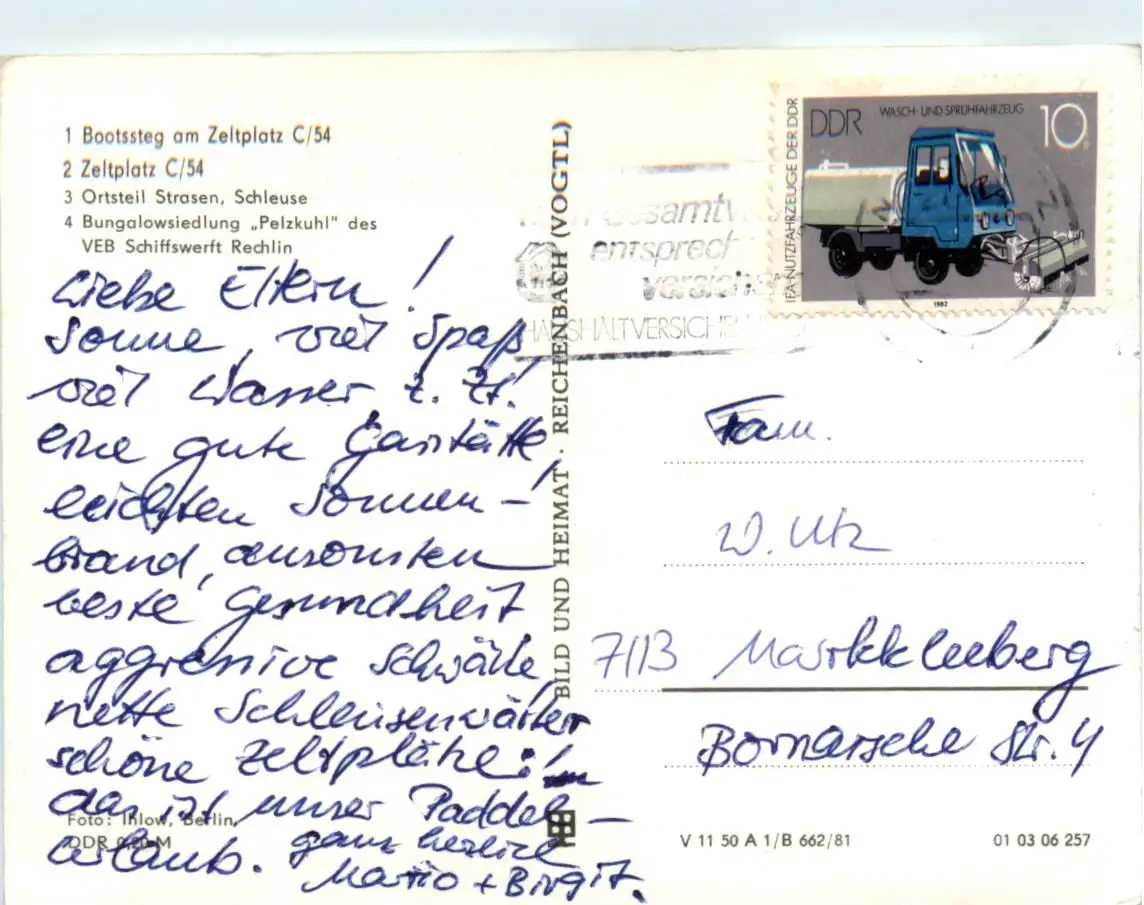 1 Bootssteg am Zeltplatz C/54
2 Zeltplatz C/54
3 Ortsteil Strasen, Schleuse
4 Bungalowsiedlung „Pelzkuhl" des
VEB Schiffswerft Rechlin
Liebe Eltern!
Sonne, viel Spaß,
viel Wasser z. Zt.!
eine gute Gaststätte,
leichten Sonnen-
brand, ansonsten
beste Gesundheit
aggressive Schwäne,
nette Schleusenwärter
schöne Zeltplätze:
das ist unser Paddel-
urlaub.
ganz herzlich
Mario + Birgit.
Foto: Ihlow, Berlin
DDR 0,20 M
BILD UND HEIMAT · REICHENBACH (VOGTL)
Gesamtv
entsprech
versich
HAUSHALTVERSICHE
IFA-NUTZFAHRZEUGE DER DDR
DDR
WASCH- UND SPRÜHFAHRZEUG
10
1982
Fam.
W. Utz
7113 Markkleeberg
Bornaische Str. 4
V 11 50 A 1/B 662/81
01 03 06 257